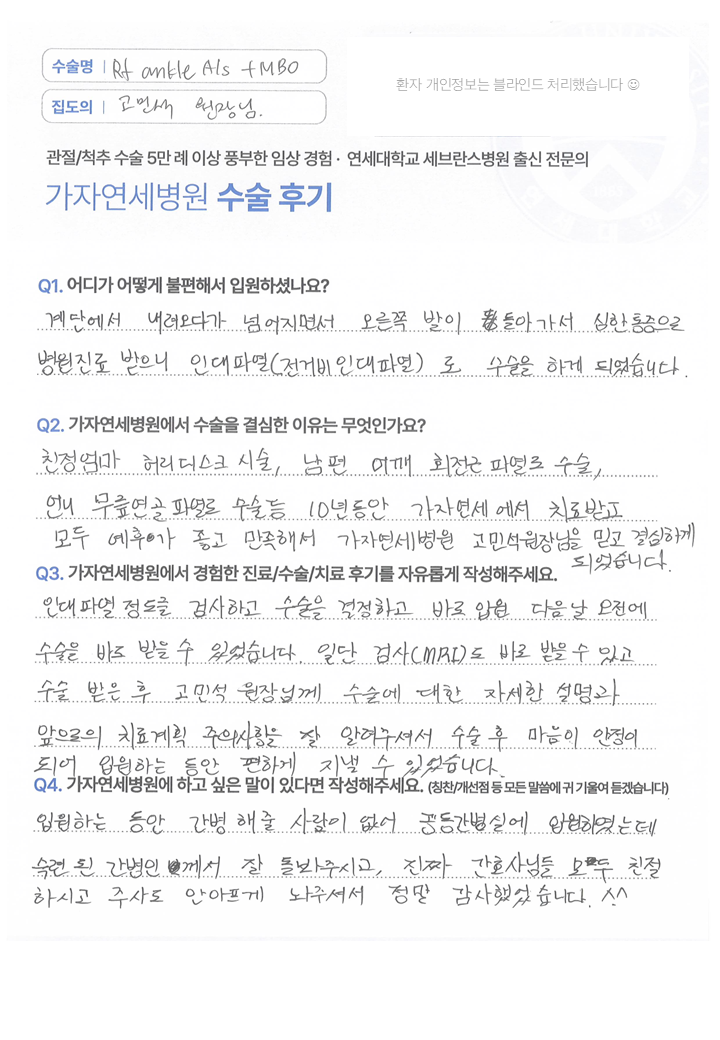 수술명 | Rt ankle A/s +MBO
환자 개인정보는 블라인드 처리했습니다
집도의 | 고민석 원장님.
관절/척추 수술 5만 례 이상 풍부한 임상 경험 · 연세대학교 세브란스병원 출신 전문의
가자연세병원 수술 후기
Q1. 어디가 어떻게 불편해서 입원하셨나요?
계단에서 내려오다가 넘어지면서 오른쪽 발이 돌아가서 심한통증으로
병원진료 받으니 인대파열(전거비인대파열) 로 수술을 하게 되었습니다.
Q2. 가자연세병원에서 수술을 결심한 이유는 무엇인가요?
친정엄마 허리디스크 시술, 남편 어깨 회전근 파열로 수술,
언니 무릎연골파열로 수술등 10년동안 가자연세에서 치료받고
모두 예후가 좋고 만족해서 가자연세병원 고민석원장님을 믿고 결심하게
되었습니다.
Q3. 가자연세병원에서 경험한 진료/수술/치료 후기를 자유롭게 작성해주세요.
인대파열 정도를 검사하고 수술을 결정하고 바로 입원 다음날 오전에
수술을 바로 받을 수 있었습니다. 일단 검사(MRI)도 바로 받을 수 있고
수술 받은 후 고민석 원장님께 수술에 대한 자세한 설명과
앞으로의 치료계획 주의사항을 잘 알려주셔서 수술 후 마음이 안정이
되어 입원하는 동안 편하게 지낼 수 있었습니다.
Q4. 가자연세병원에 하고 싶은 말이 있다면 작성해주세요. (칭찬/개선점 등 모든 말씀에 귀 기울여 듣겠습니다)
입원하는 동안 간병 해줄 사람이 없어 공동간병실에 입원하였는데
숙련 된 간병인 께서 잘 돌봐주시고, 진짜 간호사님들 모두 친절
하시고 주사도 안아프게 놔주셔서 정말 감사했었습니다. ^^